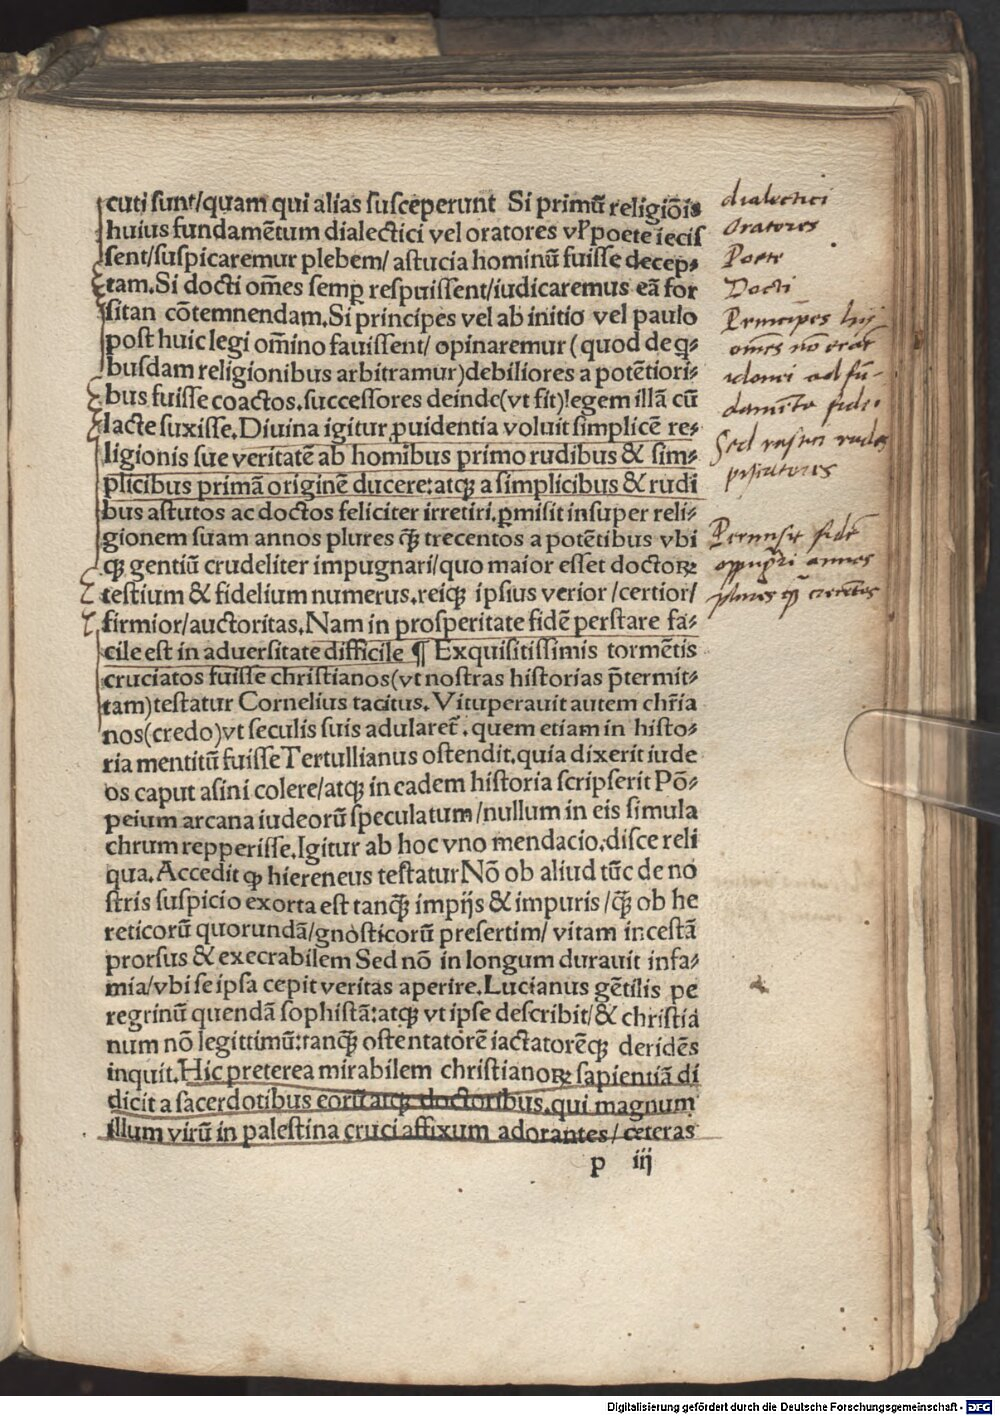 cuti sunt/quam qui alias susceperunt Si primū religiōis
huius fundamētum dialectici vel oratores vl̕ poete iecis
sent/suspicaremur plebem/ astucia hominū fuisse decep⸗
tam.Si docti om̄es semp̱ respuissent/iudicaremus eā for
sitan cōtemnendam.Si principes vel ab initio vel paulo
post huic legi om̄ino fauissent/ opinaremur (quod de q̱⸗
busdam religionibus arbitramur)debiliores a potētiori⸗
bus fuisse coactos.successores deinde(vt fit)legem illā cū
lacte suxisse.Diuina igitur ꝓuidentia voluit simplicē re⸗
ligionis sue veritatē ab homībus primo rudibus & sim⸗
plicibus primā originē ducere:atqȝ a simplicibus & rudi
bus astutos ac doctos feliciter irretiri.ꝑmisit insuper reli⸗
gionem suam annos plures qȝ̄ trecentos a potētibus vbi
qȝ gentiū crudeliter impugnari/quo maior esset doctoꝝ
testium & fidelium numerus.reiqȝ ipsius verior /certior/
firmior/auctoritas.Nam in prosperitate fidē perstare fa⸗
cile est in aduersitate difficile ¶ Exquisitissimis tormētis
cruciatos fuisse christianos(vt nostras historias p̄termit⸗
tam)testatur Cornelius tacitus. Vituperauit autem chr̄ia
nos(credo)vt seculis suis adularet̄. quem etiam in histo⸗
ria mentitū fuisse Tertullianus ostendit.quia dixerit iude
os caput asini colere/atqȝ in eadem historia scripserit Pō⸗
peium arcana iudeorū speculatum/nullum in eis simula
chrum repperisse.Igitur ab hoc vno mendacio.disce reli
qua.Accedit ꝙ hiereneus testatur Nō ob aliud tūc de no
stris suspicio exorta est tanqȝ̄ impijs & impuris/qȝ̄ ob he
reticorū quorundā/gnosticorū presertim/ vitam incestā
prorsus & execrabilem Sed nō in longum durauit infa⸗
mia/vbi se ipsa cepit veritas aperire.Lucianus gētilis pe
regrinū quendā sophistā:atqȝ vt ipse describit/& christia
num nō legittimū:tanqȝ̄ ostentatorē iactatorēqȝ deridēs
inquit.Hic preterea mirabilem christianoꝝ sapientiā di
dicit a sacerdotibus eorū atqȝ doctoribus.qui magnum
illum virū in palestina cruci affixum adorantes/ ceteras
p iij
dialectici
Oratores
Poete
Docti
Principes hij
om̄es nō erāt
idonei ad fū-
damētū fidei
Sed rudes
piscatores
Permisit fidē
oppugn̄ri annos
plures qȝ trecētos
Digitalisierung gefördert durch die Deutsche Forschungsgemeinschaft - DFG